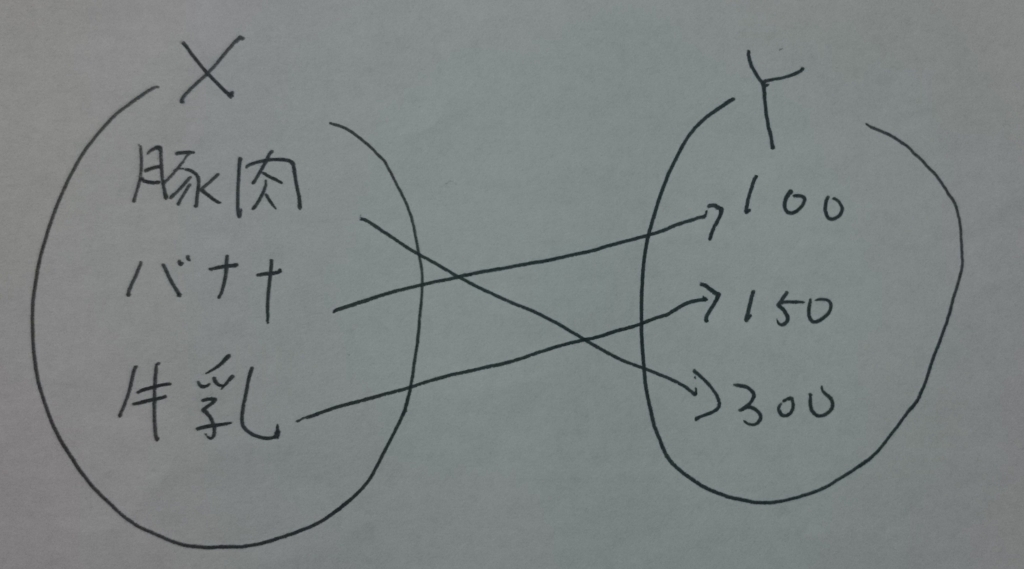 X
豚肉
バナナ
牛乳
Y
100
150
300